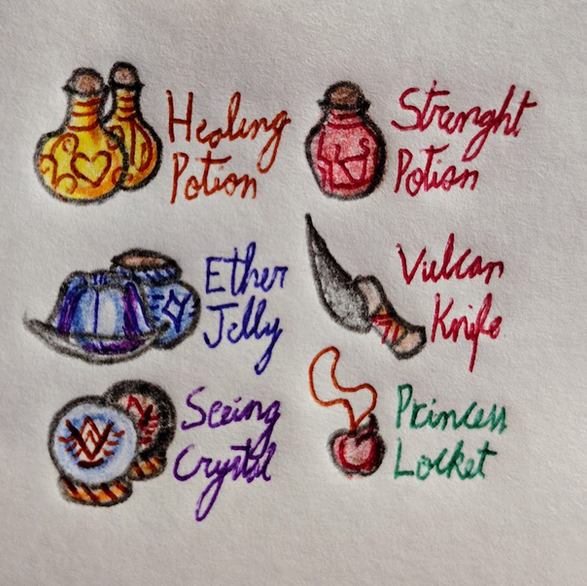 Healing
Potion
Strenght
Potion
Ether
Jelly
Vulcan
Knife
Seeing
Crystal
Princess
Locket